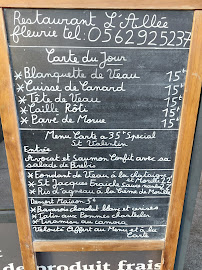 Restaurant L'Allée
fleurie tel: 0562925237
Carte du Jour
* Blanquette de Veau 15€
* Cuisse de Canard 15€
* Tête de Veau 15€
* Caille Rôti 15€
* Pavé de Morue 15€
Menu Carte a 35€ Special
St Valentin
Entrée
Avocat et Saumon Confit avec sa
salade de Brebis
* Fondant de Veau à la
* St Jacques Fraiche
* Ris d'agneau a la Crème de Morille
Dessert Maison 5€
* Bavarois chocolat blanc et
* Tatin aux Pommes
* Tiramisu au
Velouté Offert au Menu et à la
Carte
de produit frais